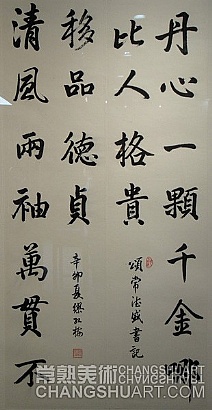 丹心一顆千金哪
比人格貴
頌常德盛書記
清風兩袖萬貫不
移品德貞
辛卯夏
常熟美術
CHANGSHUART.COM